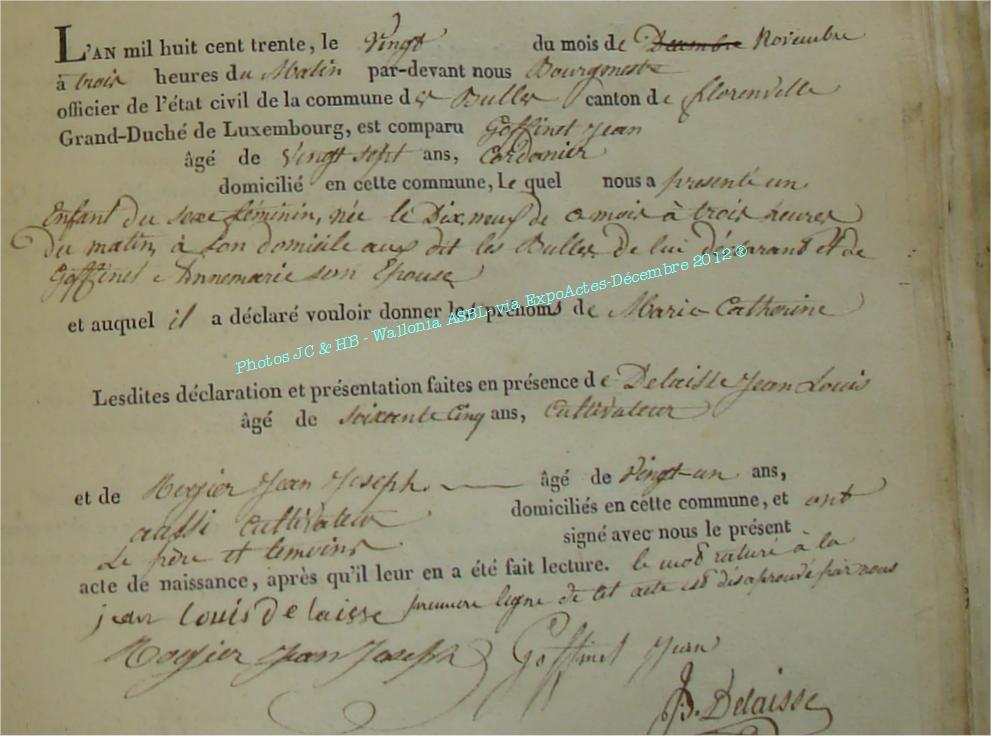 L'AN mil huit cent trente, le Vingt du mois de Decembre Novembre
à trois heures du Matin par-devant nous Bourgmestre
officier de l'état civil de la commune des Bulles canton de florenville
Grand-Duché de Luxembourg, est comparu Goffinet Jean
âgé de vingt sept ans, Cordonier
domicilié en cette commune, Le quel nous a presenté un
Enfant du sexe féminin, née le Dix neuf de ce mois à trois heures
Du matin, à son domicile aux dit les Bulles, de lui déclarant et de
Goffinet Annemarie son Epouse
et auquel il a déclaré vouloir donner les prénoms de Marie Catherine
Photos JC & HB - Wallonia ASBL via ExpoActes-Décembre 2012 ®
Lesdites déclaration et présentation faites en présence de Delaisse Jean Louis
âgé de soixante Cinq ans, Cultivateur
et de Rogier Jean Joseph âgé de vingt-un ans,
aussi Cultivateur domiciliés en cette commune, et ont
Le père et temoins signé avec nous le présent
acte de naissance, après qu'il leur en a été fait lecture. le mot raturé à la
premiere ligne de cet acte est désaprouvé par nous
jean Louis Delaisse
Rogier Jean Joseph Goffinet Jean
Delaisse